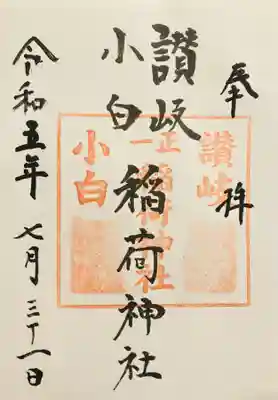 奉拝
讃岐
小白稲荷神社
令和五年 七月三十一日
讃岐
正一
稲荷神社
小白